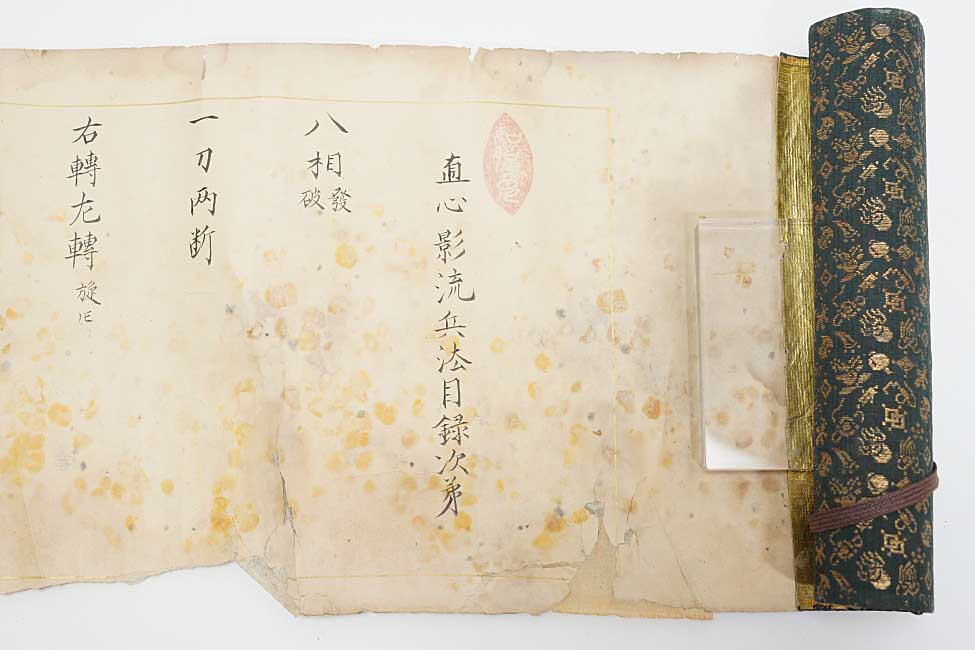 直心影流兵法目録次第
八相 發破
一刀両断
右轉左轉 旋